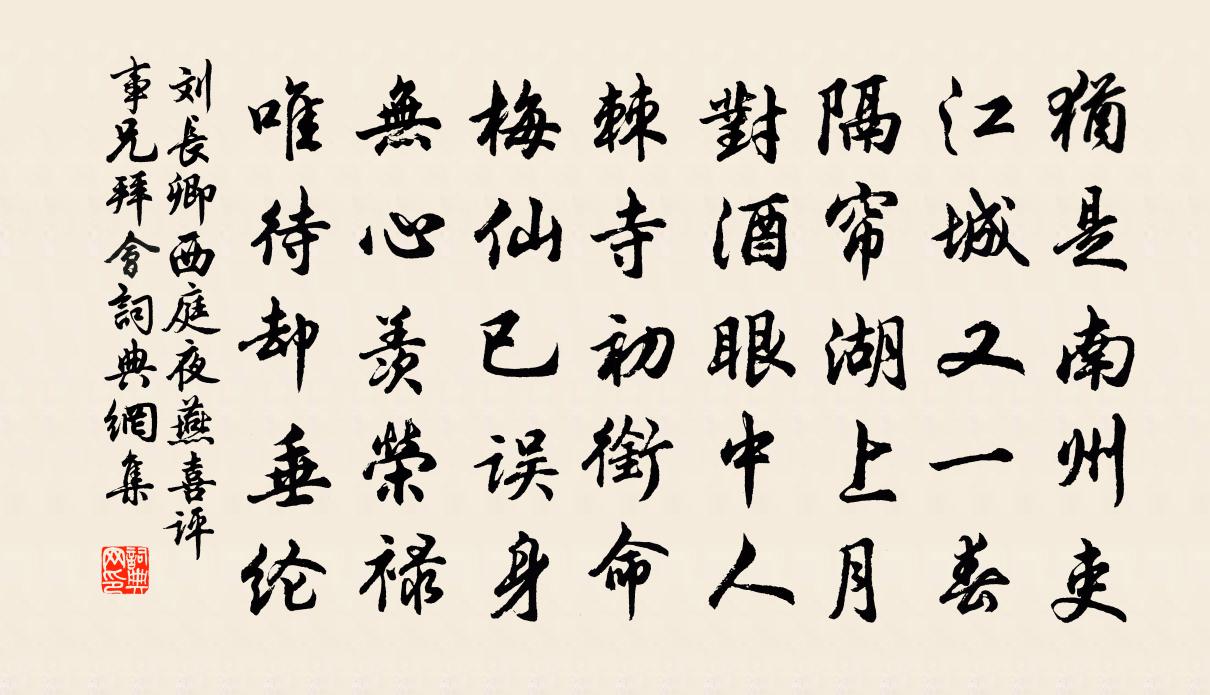 猶是南州吏
江城又一春
隔帘湖上月
對酒眼中人
棘寺初銜命
梅仙已误身
無心羡榮禄
唯待却垂纶
刘長卿西庭夜燕喜評
事兄拜會詞典網集
詞典
网印